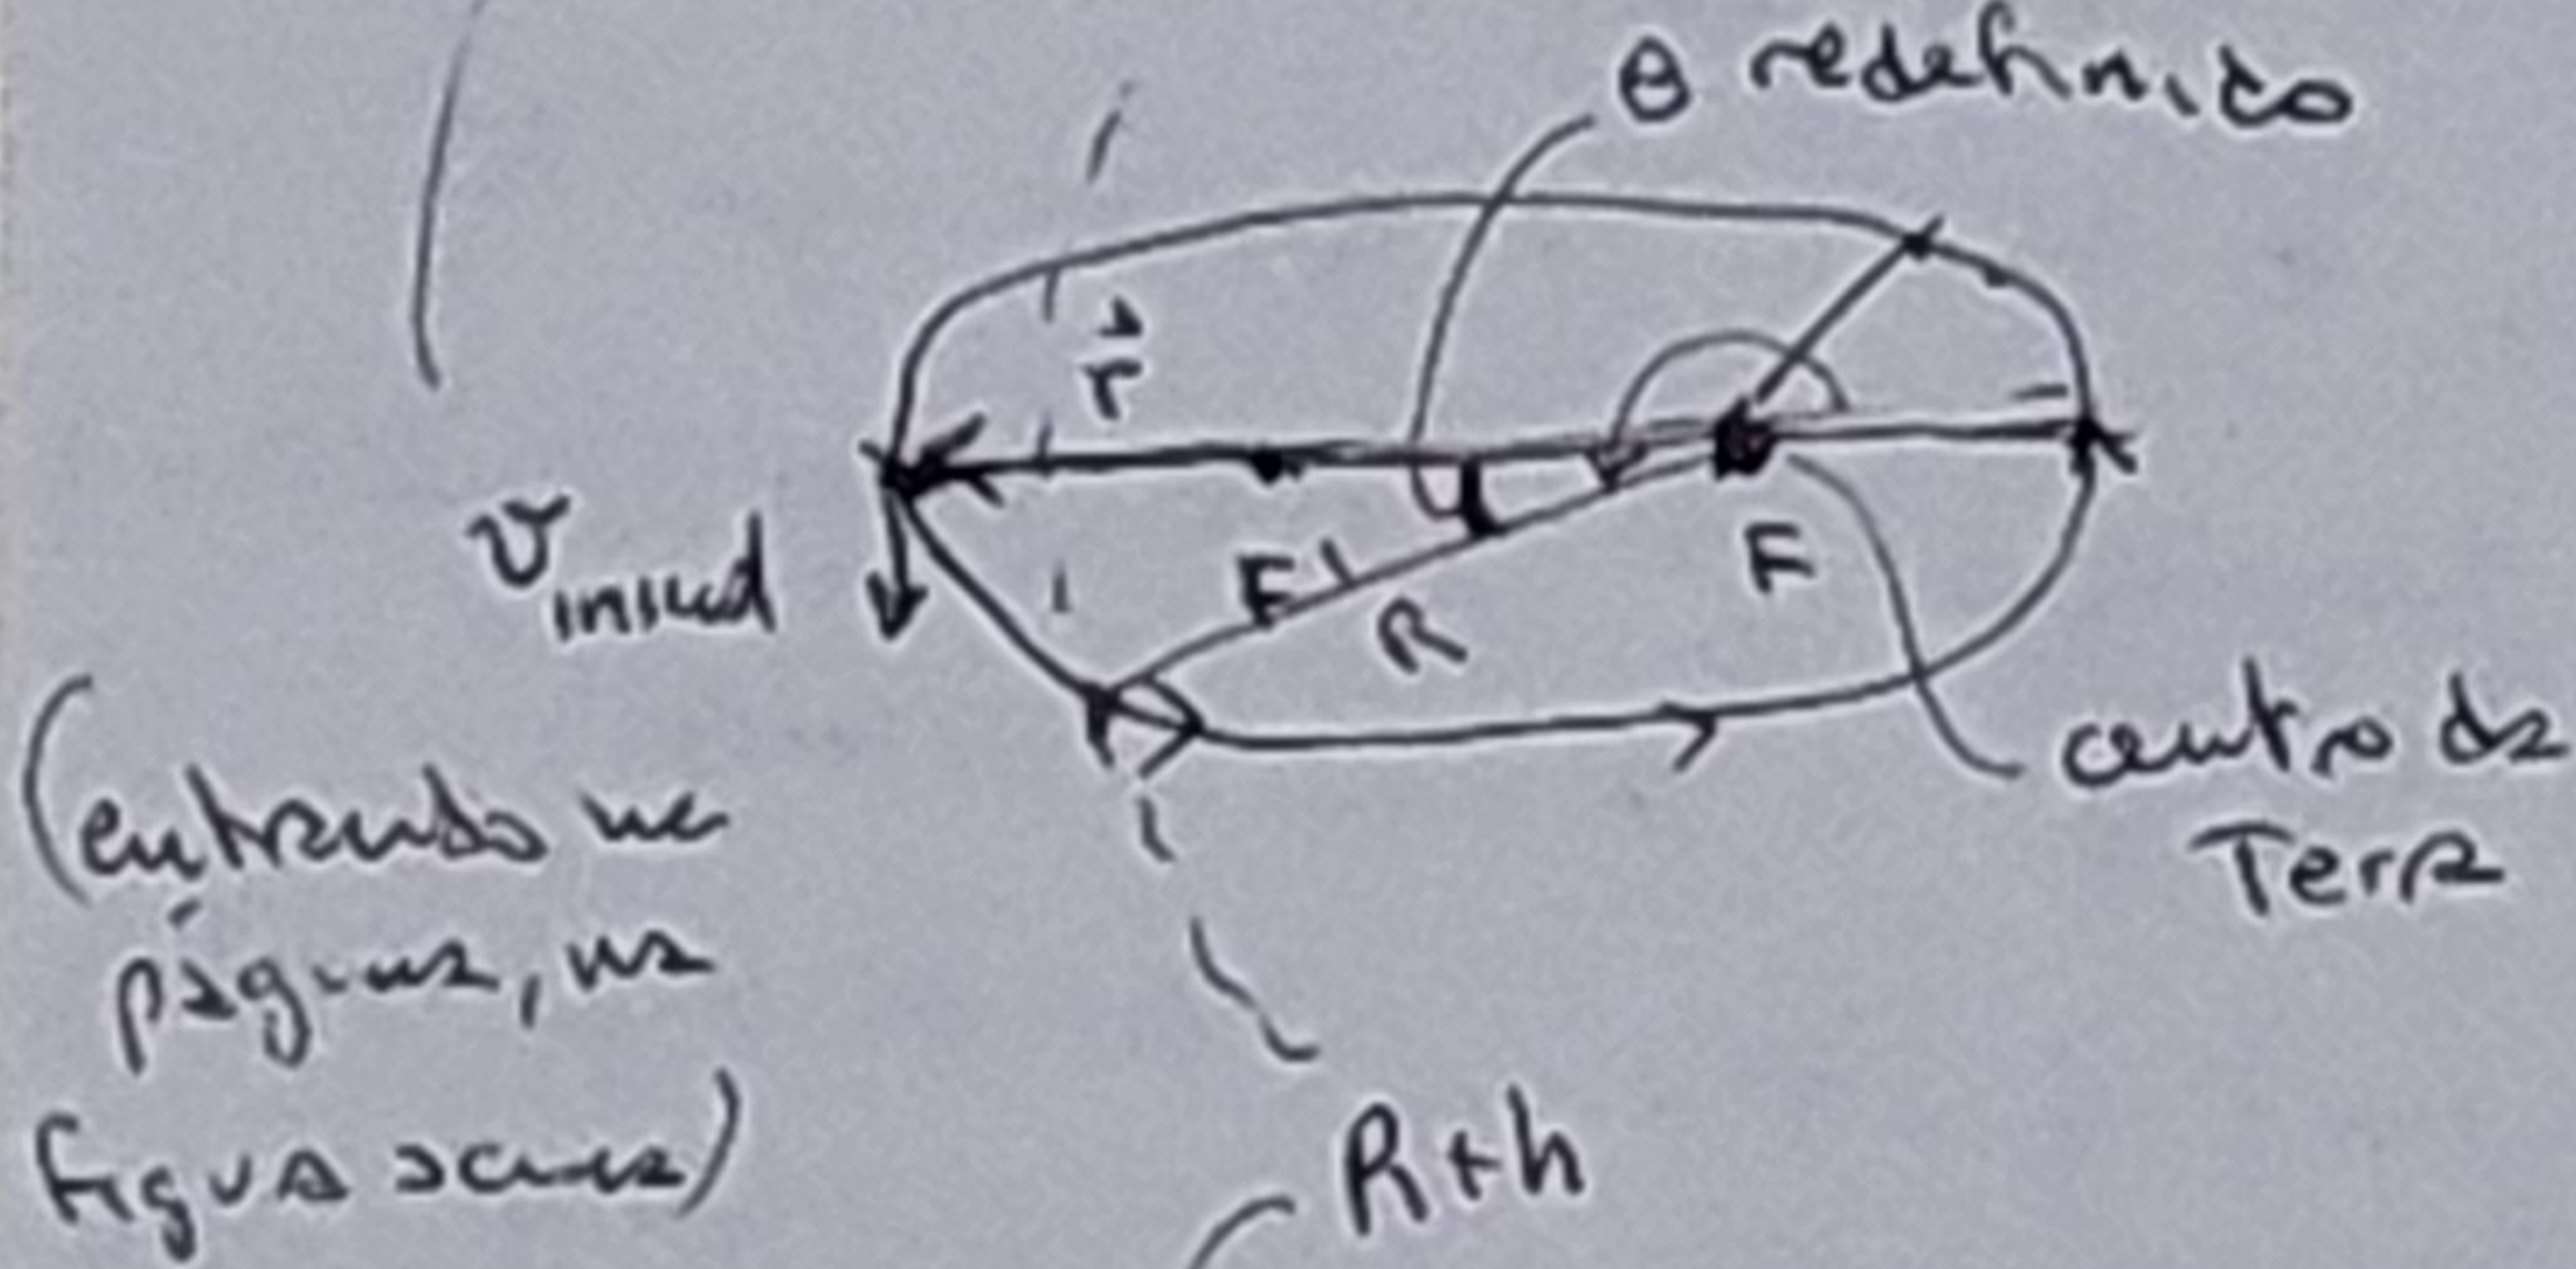 θ redefinido
r
v inicial
F'
R
F
centro da
Terra
(entrando na
página, na
figura acima)
R+h